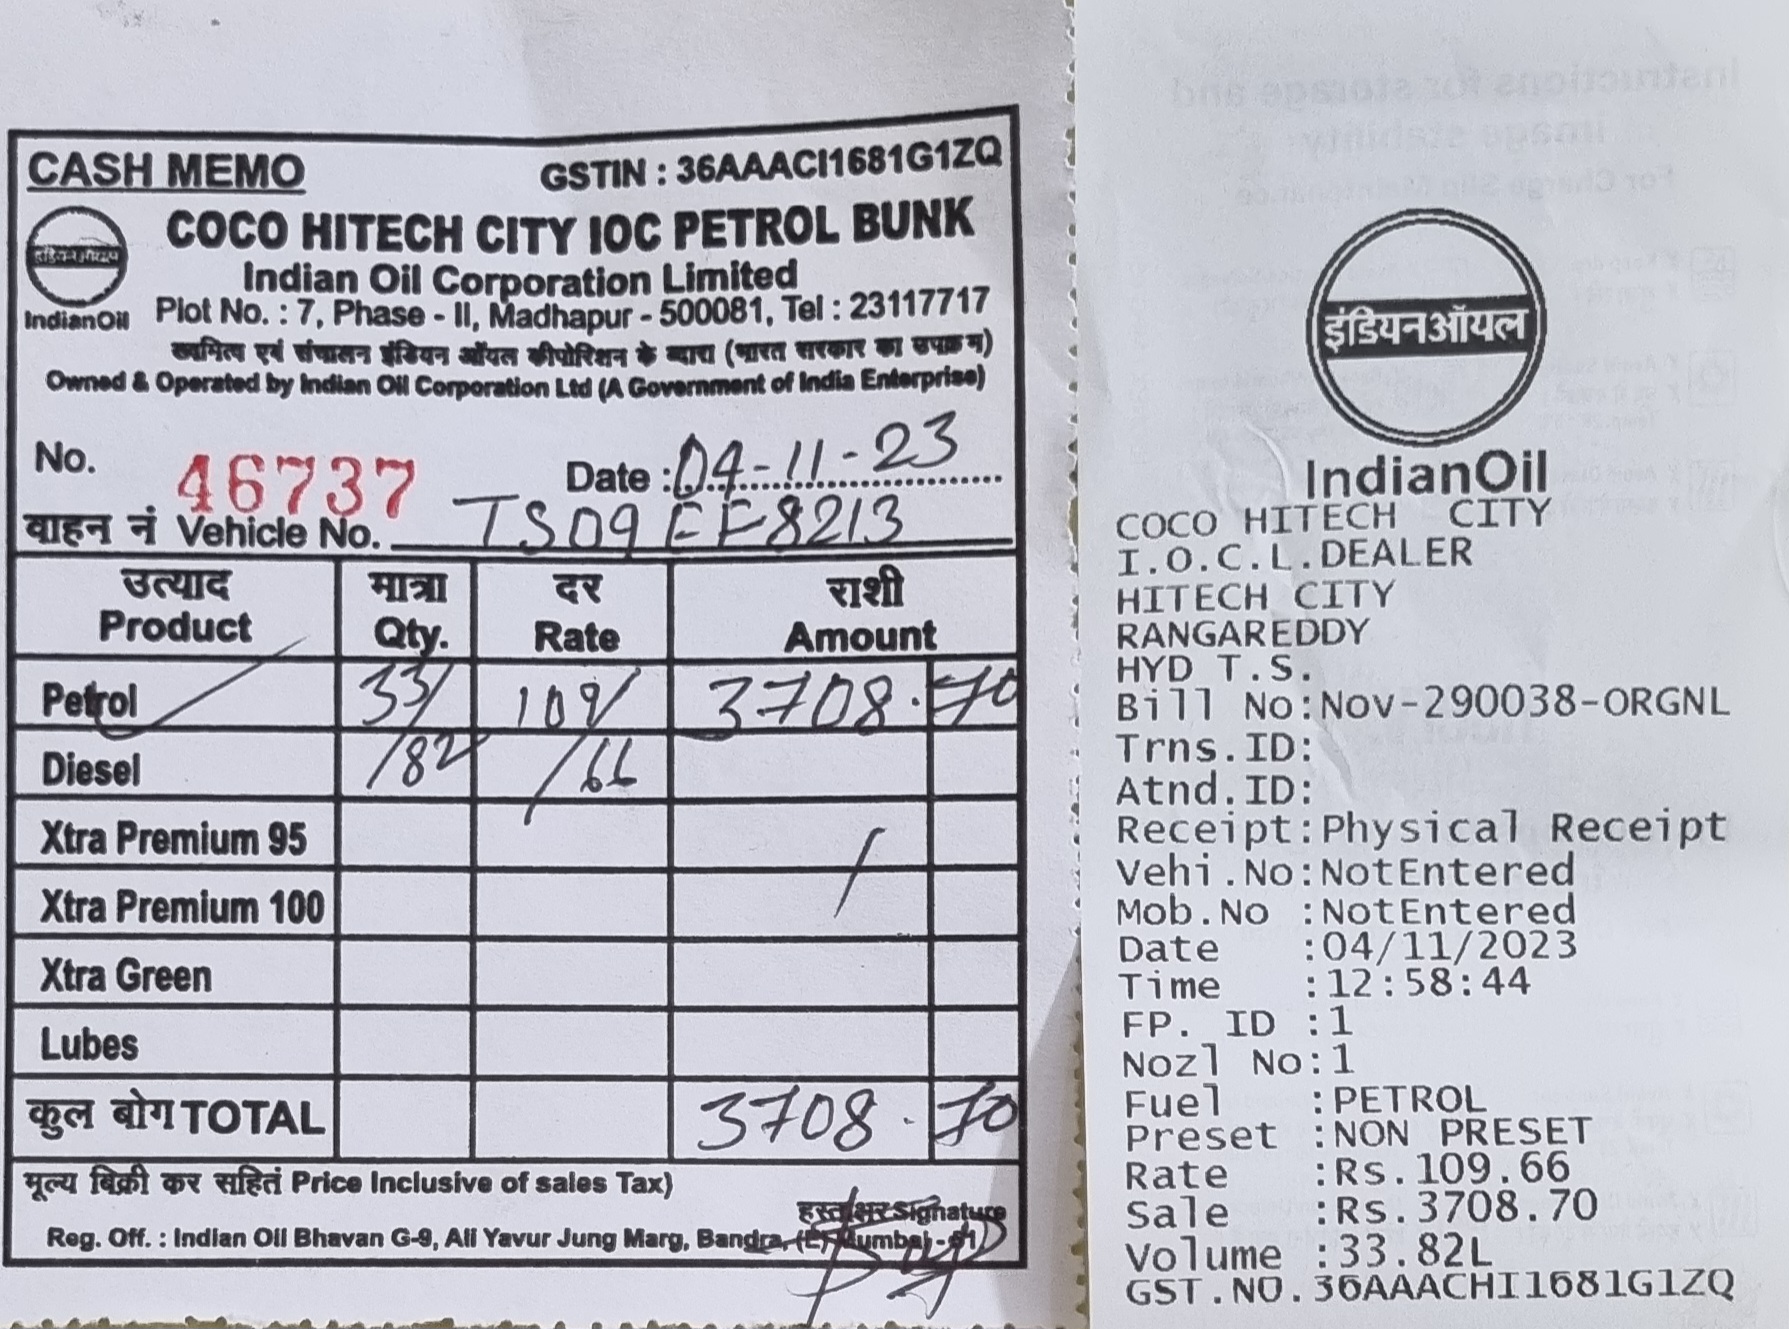 CASH MEMO
GSTIN : 36AAACI1681G1ZQ
इंडियनऑयल
IndianOil
COCO HITECH CITY IOC PETROL BUNK
Indian Oil Corporation Limited
Plot No. : 7, Phase - II, Madhapur - 500081, Tel : 23117717
स्वामित्व एवं संचालन इंडियन ऑयल कीपोरिशन के ब्दारा (भारत सरकार का उपक्रम)
Owned & Operated by Indian Oil Corporation Ltd (A Government of India Enterprise)
No. 46737 Date : 04-11-23
वाहन नं Vehicle No. TS09EF8213
उत्याद मात्रा दर राशी
Product Qty. Rate Amount
Petrol 33/ 109/ 3708.70
Diesel /82 /66
Xtra Premium 95
Xtra Premium 100
Xtra Green
Lubes
कुल बोग TOTAL 3708.70
मूल्य बिक्री कर सहितं Price Inclusive of sales Tax)
हस्ताक्षर Signature
Reg. Off. : Indian Oil Bhavan G-9, Ali Yavur Jung Marg, Bandra, (E) Mumbai - 51)
Instructions for storage and
image stability
For Charge Slip Maintenance
इंडियनऑयल
IndianOil
COCO HITECH CITY
I.O.C.L.DEALER
HITECH CITY
RANGAREDDY
HYD T.S.
Bill No:Nov-290038-ORGNL
Trns.ID:
Atnd.ID:
Receipt:Physical Receipt
Vehi.No:NotEntered
Mob.No :NotEntered
Date :04/11/2023
Time :12:58:44
FP. ID :1
Nozl No:1
Fuel :PETROL
Preset :NON PRESET
Rate :Rs.109.66
Sale :Rs.3708.70
Volume :33.82L
GST.NO.36AAACHI1681G1ZQ